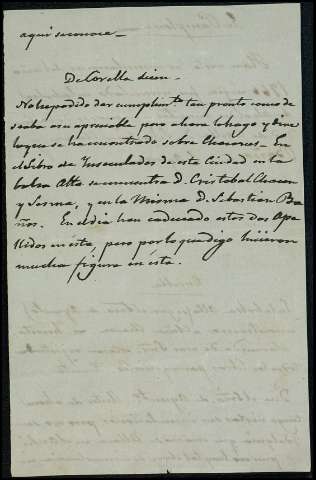 aqui se conoce_
De Corella dicen_
No he podido dar cumplim.to tan pronto como de
seaba a su apreciable, pero ahora lo hago y dire
lo que se ha encontrado sobre Chacones_ En
el Libro de Insaculados de esta Ciudad en la
bolsa Alta se encuentra D. Cristobal Chacon
y Lerma, y en la Misma D. Sebastian Ba
ños. En el dia han caducado estos dos Ape
llidos en esta, pero por lo que digo hicieron
mucha figura en ésta.